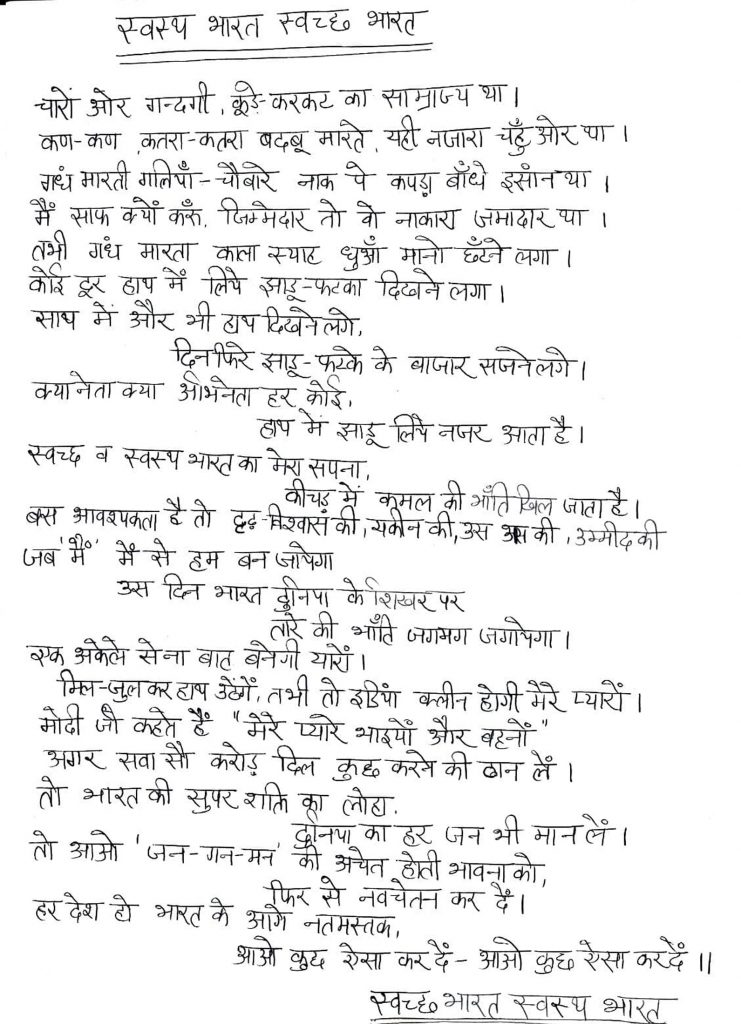 स्वस्थ भारत स्वच्छ भारत
चारों ओर गन्दगी, कूड़े-करकट का साम्राज्य था।
कण-कण, कतरा-कतरा बदबू मारते, यही नजारा चहुँ ओर था।
गधं मारती गलियाँ-चौबारे नाक पे कपड़ा बाँधे इसांन था।
मैं साफ क्यों करूं, जिम्मेदार तो वो नाकारा जमादार था।
तभी गधं मारता काला स्याह धुआँ मानो छँटने लगा।
कोई दूर हाथ में लिये झाडू-फटका दिखने लगा।
साथ में और भी हाथ दिखने लगे,
दिन फिरे झाडू-फटके के बाजार सजने लगे।
क्या नेता क्या अभिनेता हर कोई,
हाथ में झाडू लिये नजर आता है।
स्वच्छ व स्वस्थ भारत का मेरा सपना,
कीचड़ में कमल की भाँति खिल जाता है।
बस आवश्यकता है तो दृढ़-विश्वास की, यकीन की, उस की, उम्मीद की
जब 'मैं' में से हम बन जायेगा
उस दिन भारत दुनिया के शिखर पर
तारे की भाँति जगमग जगायेगा।
एक अकेले से ना बात बनेगी यारों।
मिल-जुल कर हाथ उठेगें, तभी तो इडिंया क्लीन होगी मेरे प्यारों।
मोदी जी कहते हैं "मेरे प्यारे भाइयों और बहनों"
अगर सवा सौ करोड़ दिल कुछ करने की ठान लें।
तो भारत की सुपर शक्ति का लोहा,
दुनिया का हर जन भी मान लें।
तो आओ 'जन-गन-मन' की अचेत होती भावना को,
फिर से नवचेतन कर दें।
हर देश हो भारत के आगे नतमस्तक,
आओ कुछ ऐसा कर दें - आओ कुछ ऐसा कर दें॥
स्वच्छ भारत स्वस्थ भारत